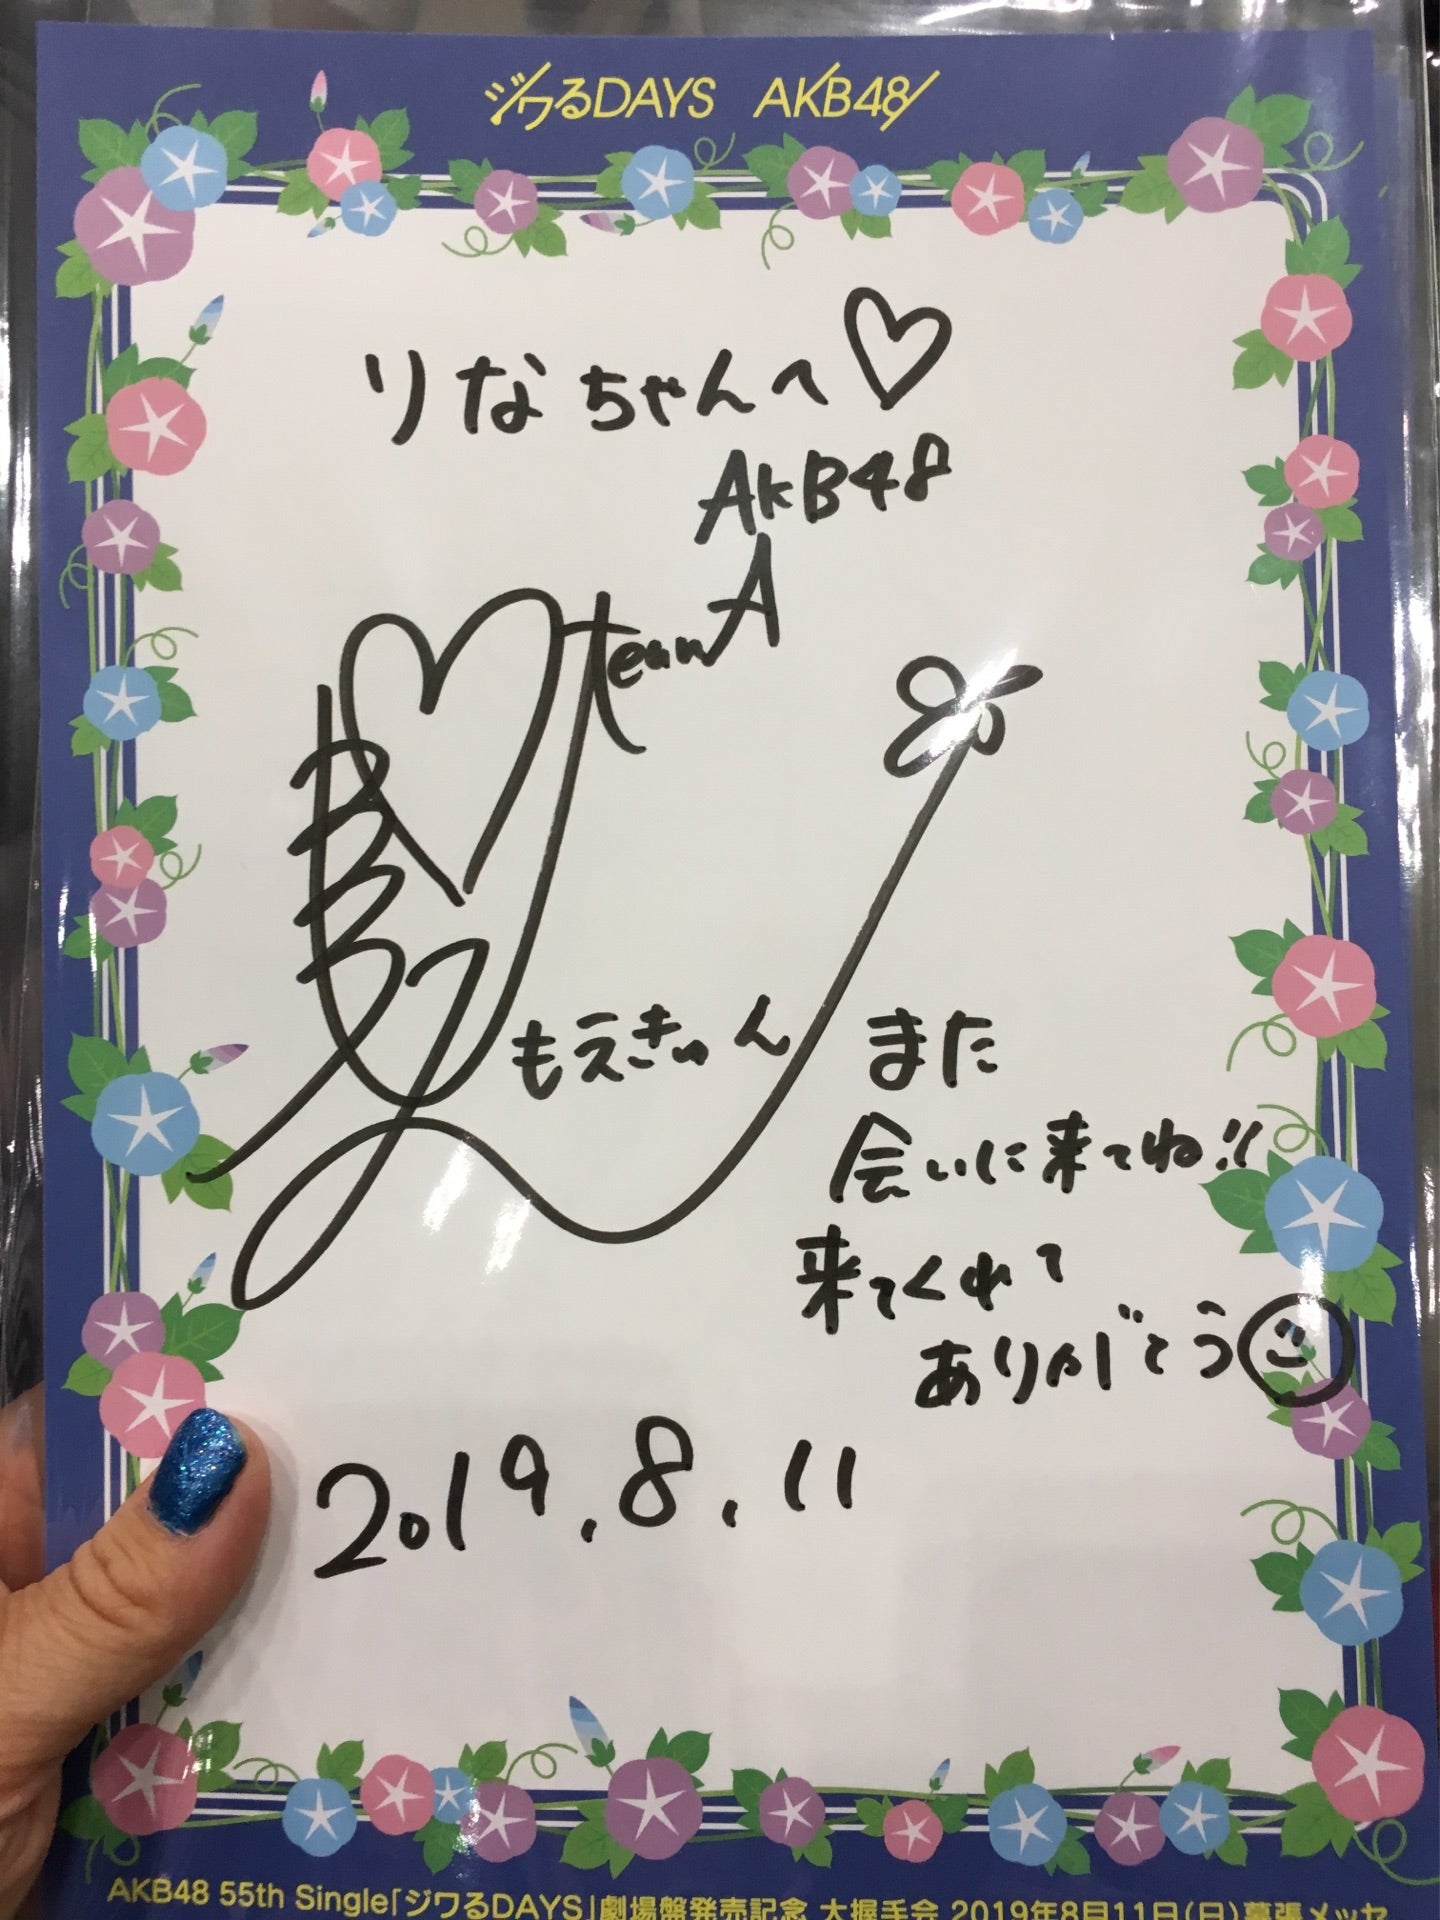 ジワるDAYS AKB48
りなちゃんへ♡
AKB48
teamA
もえきゅん
また
会いに来てね!!
来てくれて
ありがとう
2019.8.11
AKB48 55th Single「ジワるDAYS」劇場盤発売記念 大握手会 2019年8月11日(日)幕張メッセ